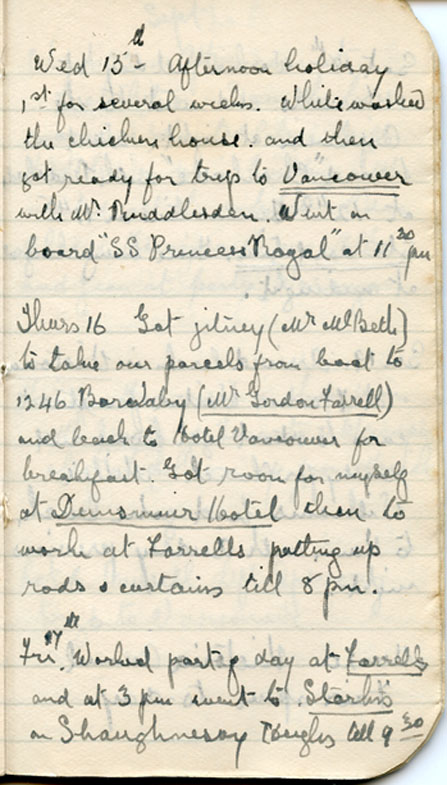 Wed 15th Afternoon holiday
1st for several weeks. Whitewashed
the chicken house. and then
got ready for trip to Vancouver
with Mr. Muddlesden. Went on
board "SS Princess Royal" at 11 30 pm
Thurs 16 Got jitney (Mr McBeth)
to take our parcels from boat to
1246 Barclaby (Mr Gordon Farrell)
and back to Hotel Vancouver for
breakfast. Got room for myself
at Dunsmuir Hotel then to
work at Farrells putting up
rods & curtains till 8 pm.
Fri. 17th Worked part of day at Farrells
and at 3 pm went to
on Shaughnessy Heights till 9 30